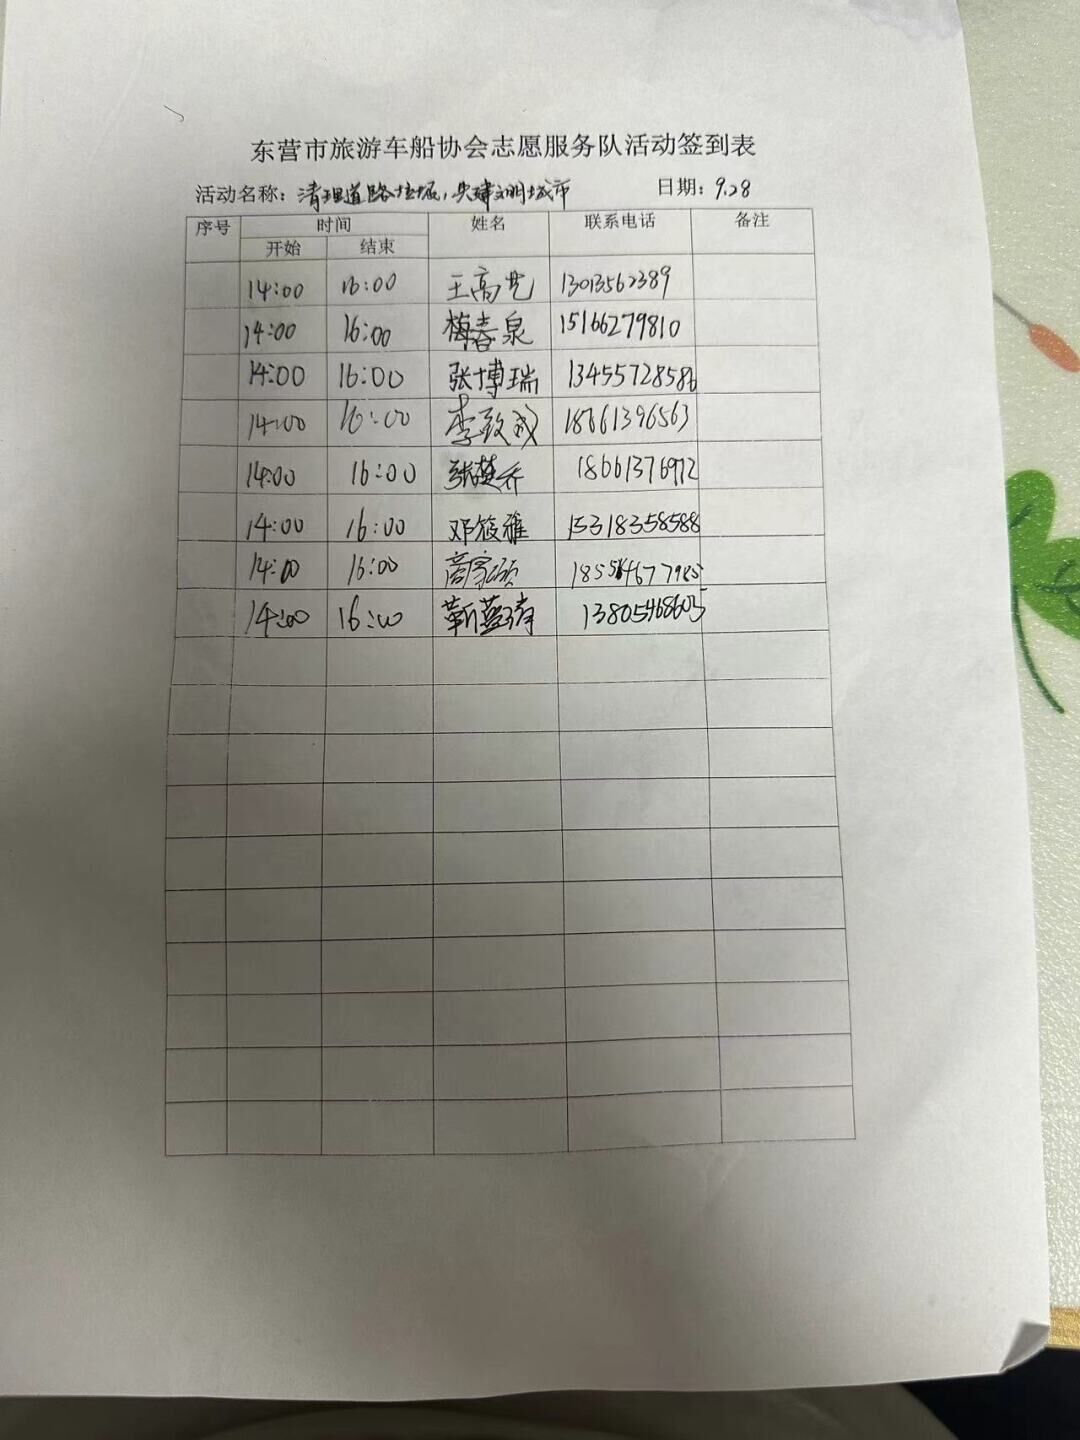 东营市旅游车船协会志愿服务队活动签到表
活动名称：清理道路垃圾，共建文明城市 日期：9.28
序号 时间 姓名 联系电话 备注
开始 结束
14:00 16:00 王高艺 13013562389
14:00 16:00 梅春泉 15166279810
14:00 16:00 张博瑞 13455728586
14:00 16:00 李致成 18661396563
14:00 16:00 张楚乔 18661376972
14:00 16:00 邓筱雅 15318358588
14:00 16:00 商家硕 18554677985
14:00 16:00 靳蓝清 13805468605